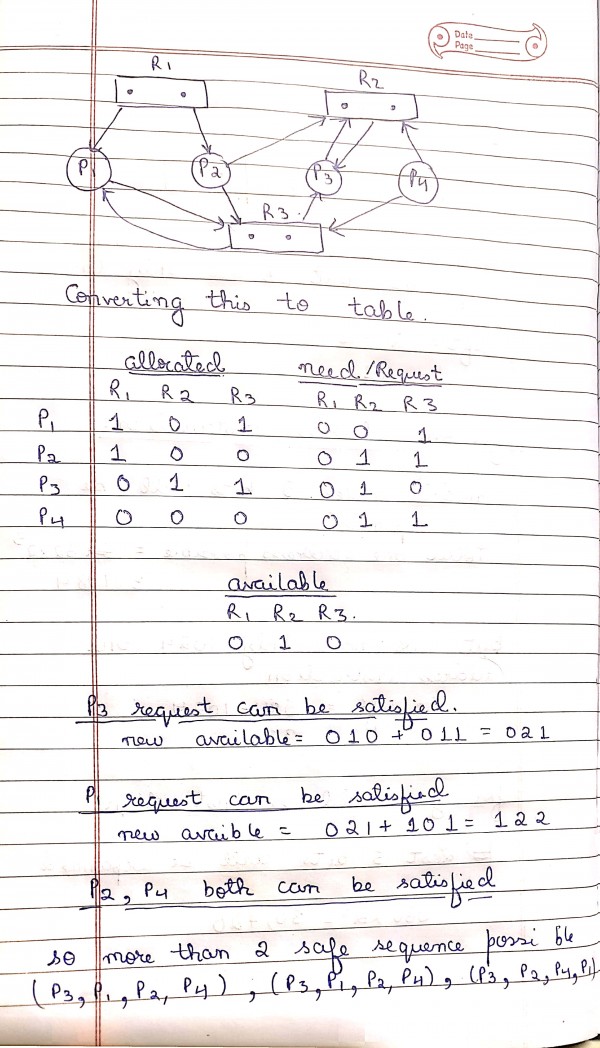 Date
Page
R1
R2
P
P2
P3
P4
R3.
Converting this to table.
allocated need/Request
R1 R2 R3 R1 R2 R3
P1 1 0 1 0 0 1
P2 1 0 0 0 1 1
P3 0 1 1 0 1 0
P4 0 0 0 0 1 1
available
R1 R2 R3.
0 1 0
P3 request can be satisfied.
new available = 010 + 011 = 021
P request can be satisfied
new avaible = 021 + 101 = 122
P2, P4 both can be satisfied
so more than 2 safe sequence possible
(P3, P1, P2, P4), (P3, P1, P2, P4), (P3, P2, P4, P1)